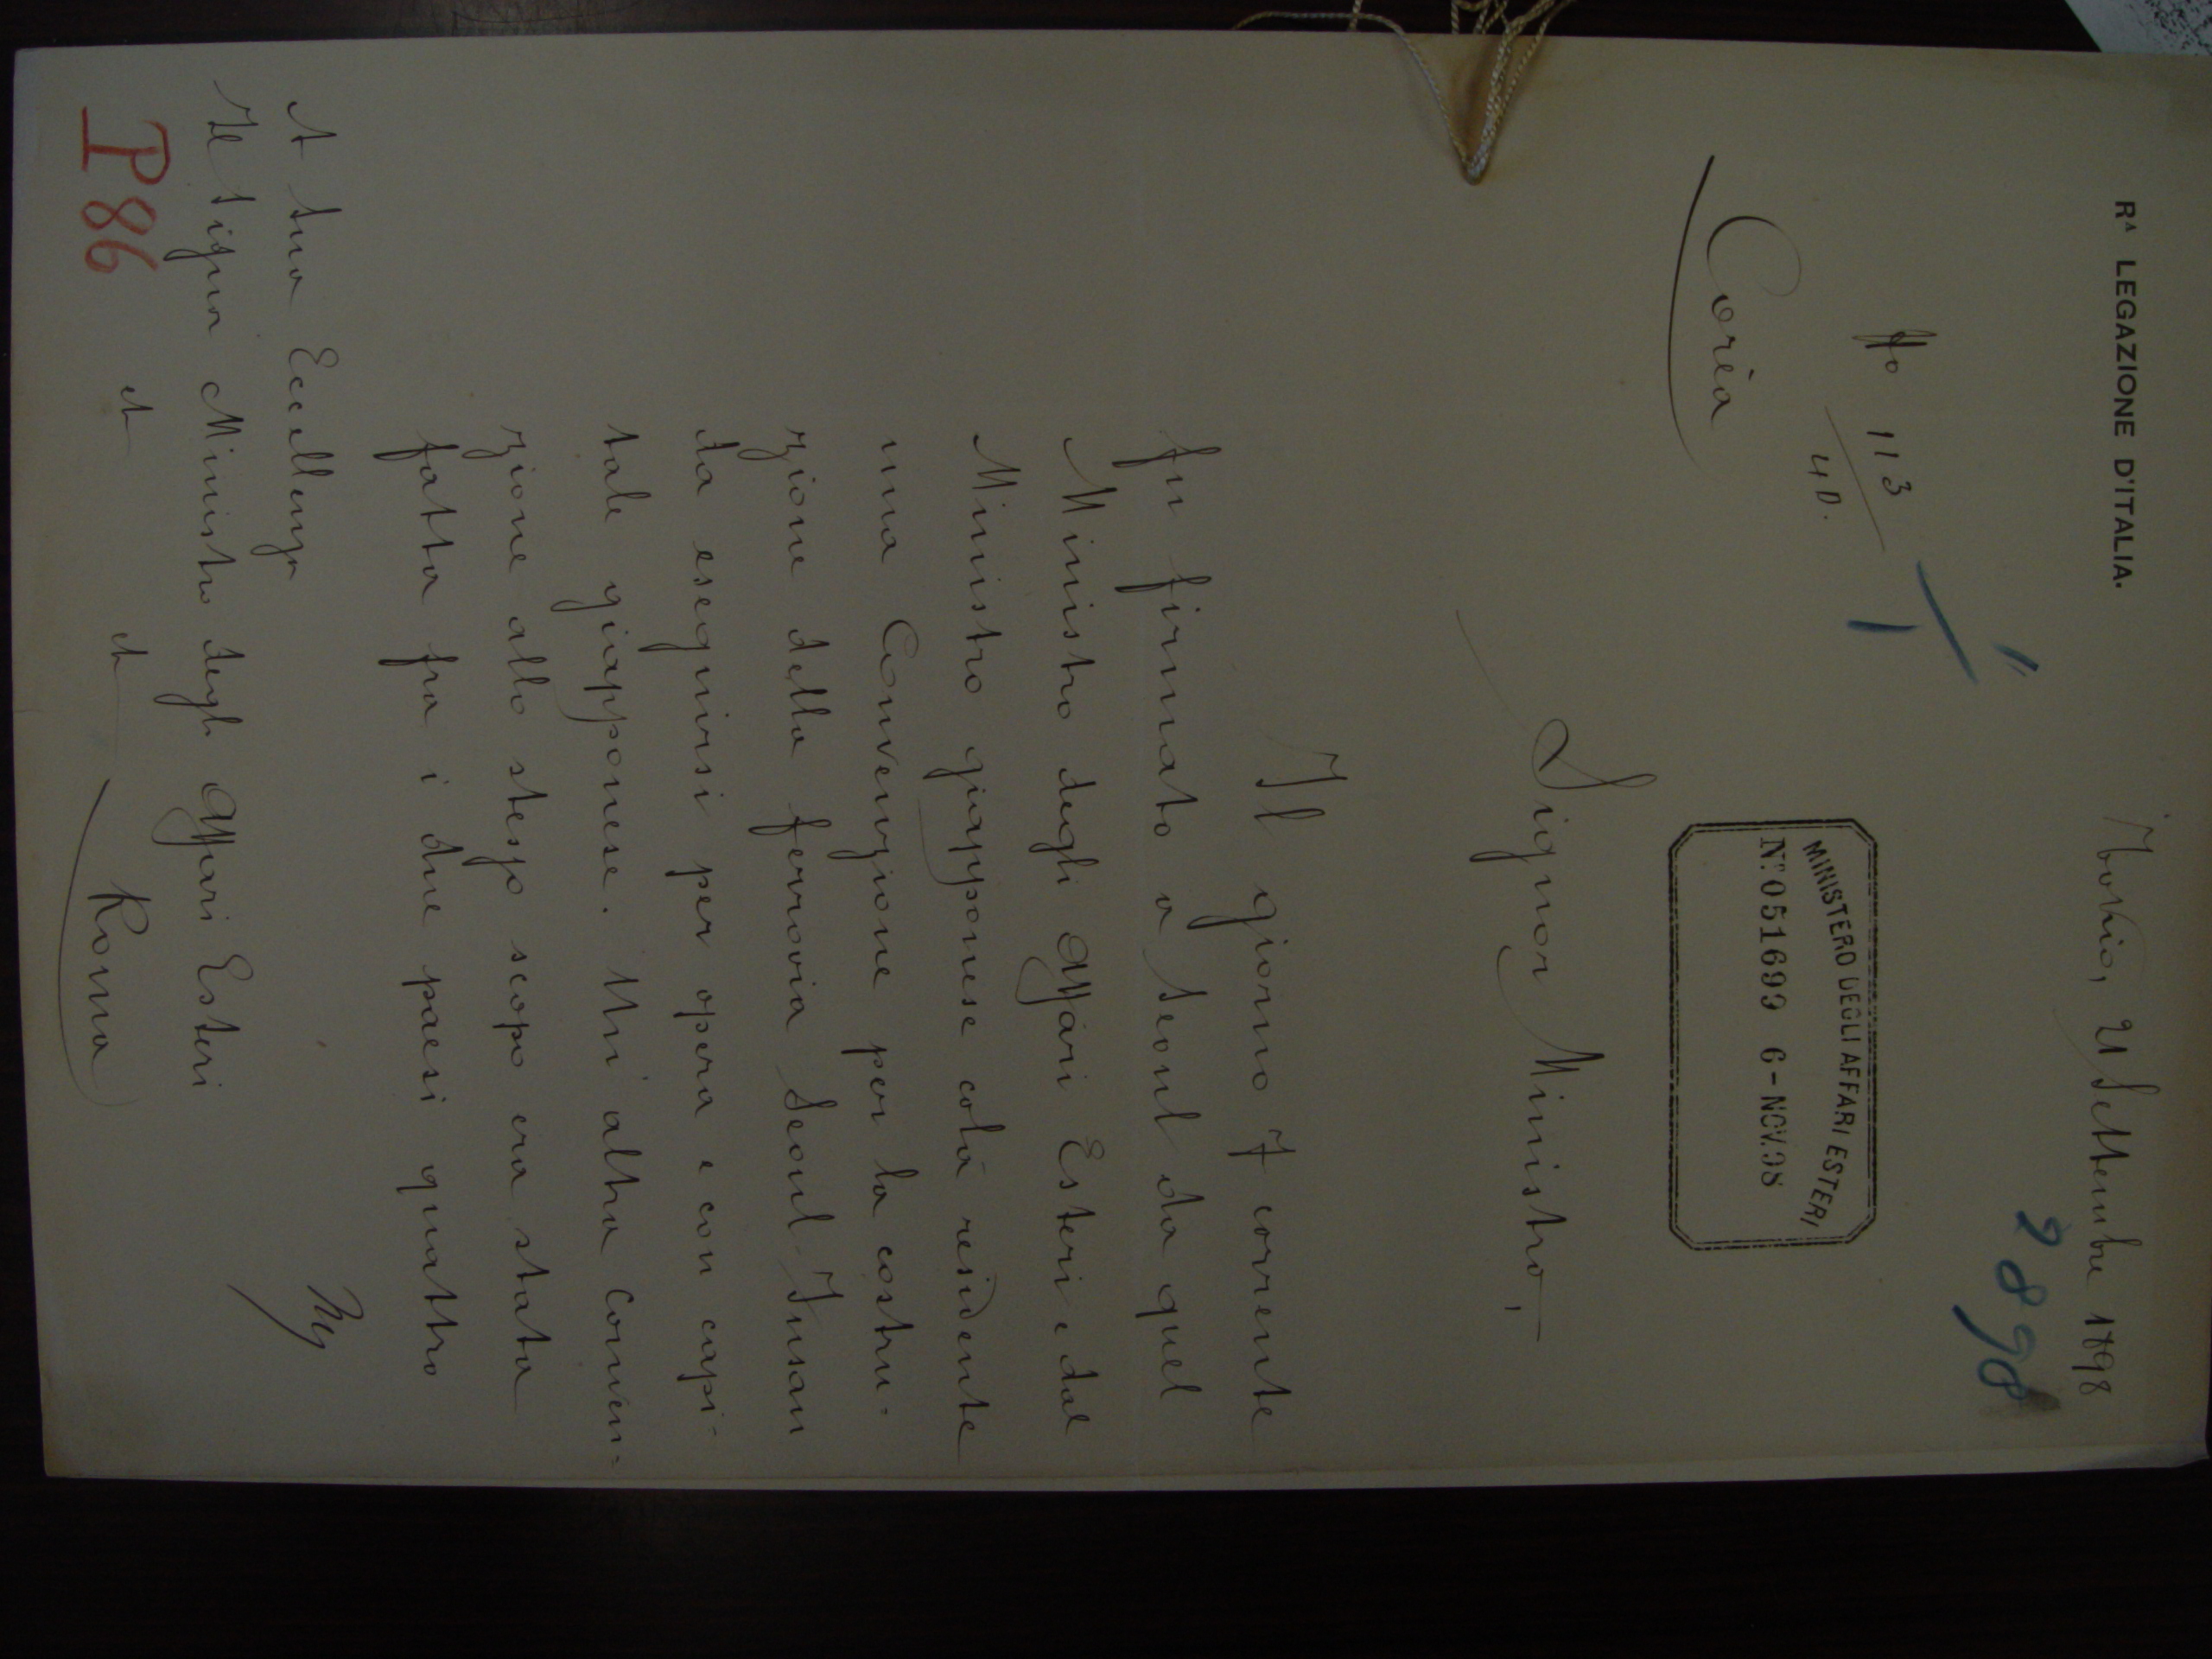 Rᴬ LEGAZIONE D'ITALIA.
Tokio, 21 Settembre 1898
2898
No 113
40.
Corèa
MINISTERO DEGLI AFFARI ESTERI
N.º 051699 6-NOV.98
Signor Ministro,
Il giorno 7 corrente
fu firmato a Seoul da quel
Ministro degli Affari Esteri e dal
Ministro giapponese colà residente
una Convenzione per la costru-
zione della ferrovia Seoul-Fusan
da eseguirsi per opera e con capi-
tale giapponese. Un' altra conven=
zione allo stesso scopo era stata
fatta fra i due paesi quattro
A Sua Eccellenza
Il Signor Ministro degli Affari Esteri
et et Roma
P86